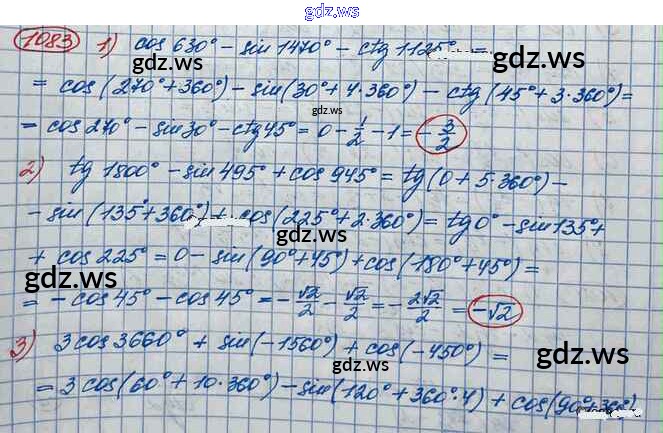 gdz.ws
1083 1) cos 630° - sin 1470° - ctg 1125° =
gdz.ws gdz.ws
= cos (270° + 360°) - sin (30° + 4·360°) - ctg (45° + 3·360°) =
gdz.ws
= cos 270° - sin 30° - ctg 45° = 0 - 1/2 - 1 = - 3/2
2) tg 1800° - sin 495° + cos 945° = tg (0 + 5·360°) -
gdz.ws gdz.ws
- sin (135° + 360°) + cos (225° + 2·360°) = tg 0° - sin 135° +
gdz.ws
+ cos 225° = 0 - sin (90° + 45°) + cos (180° + 45°) =
gdz.ws gdz.ws
= - cos 45° - cos 45° = - √2/2 - √2/2 = - 2√2/2 = - √2
3) 3 cos 3660° + sin (-1560°) + cos (-450°) =
gdz.ws gdz.ws
= 3 cos (60° + 10·360°) - sin (120° + 360°·4) + cos (90° + 360°)
gdz.ws gdz.ws